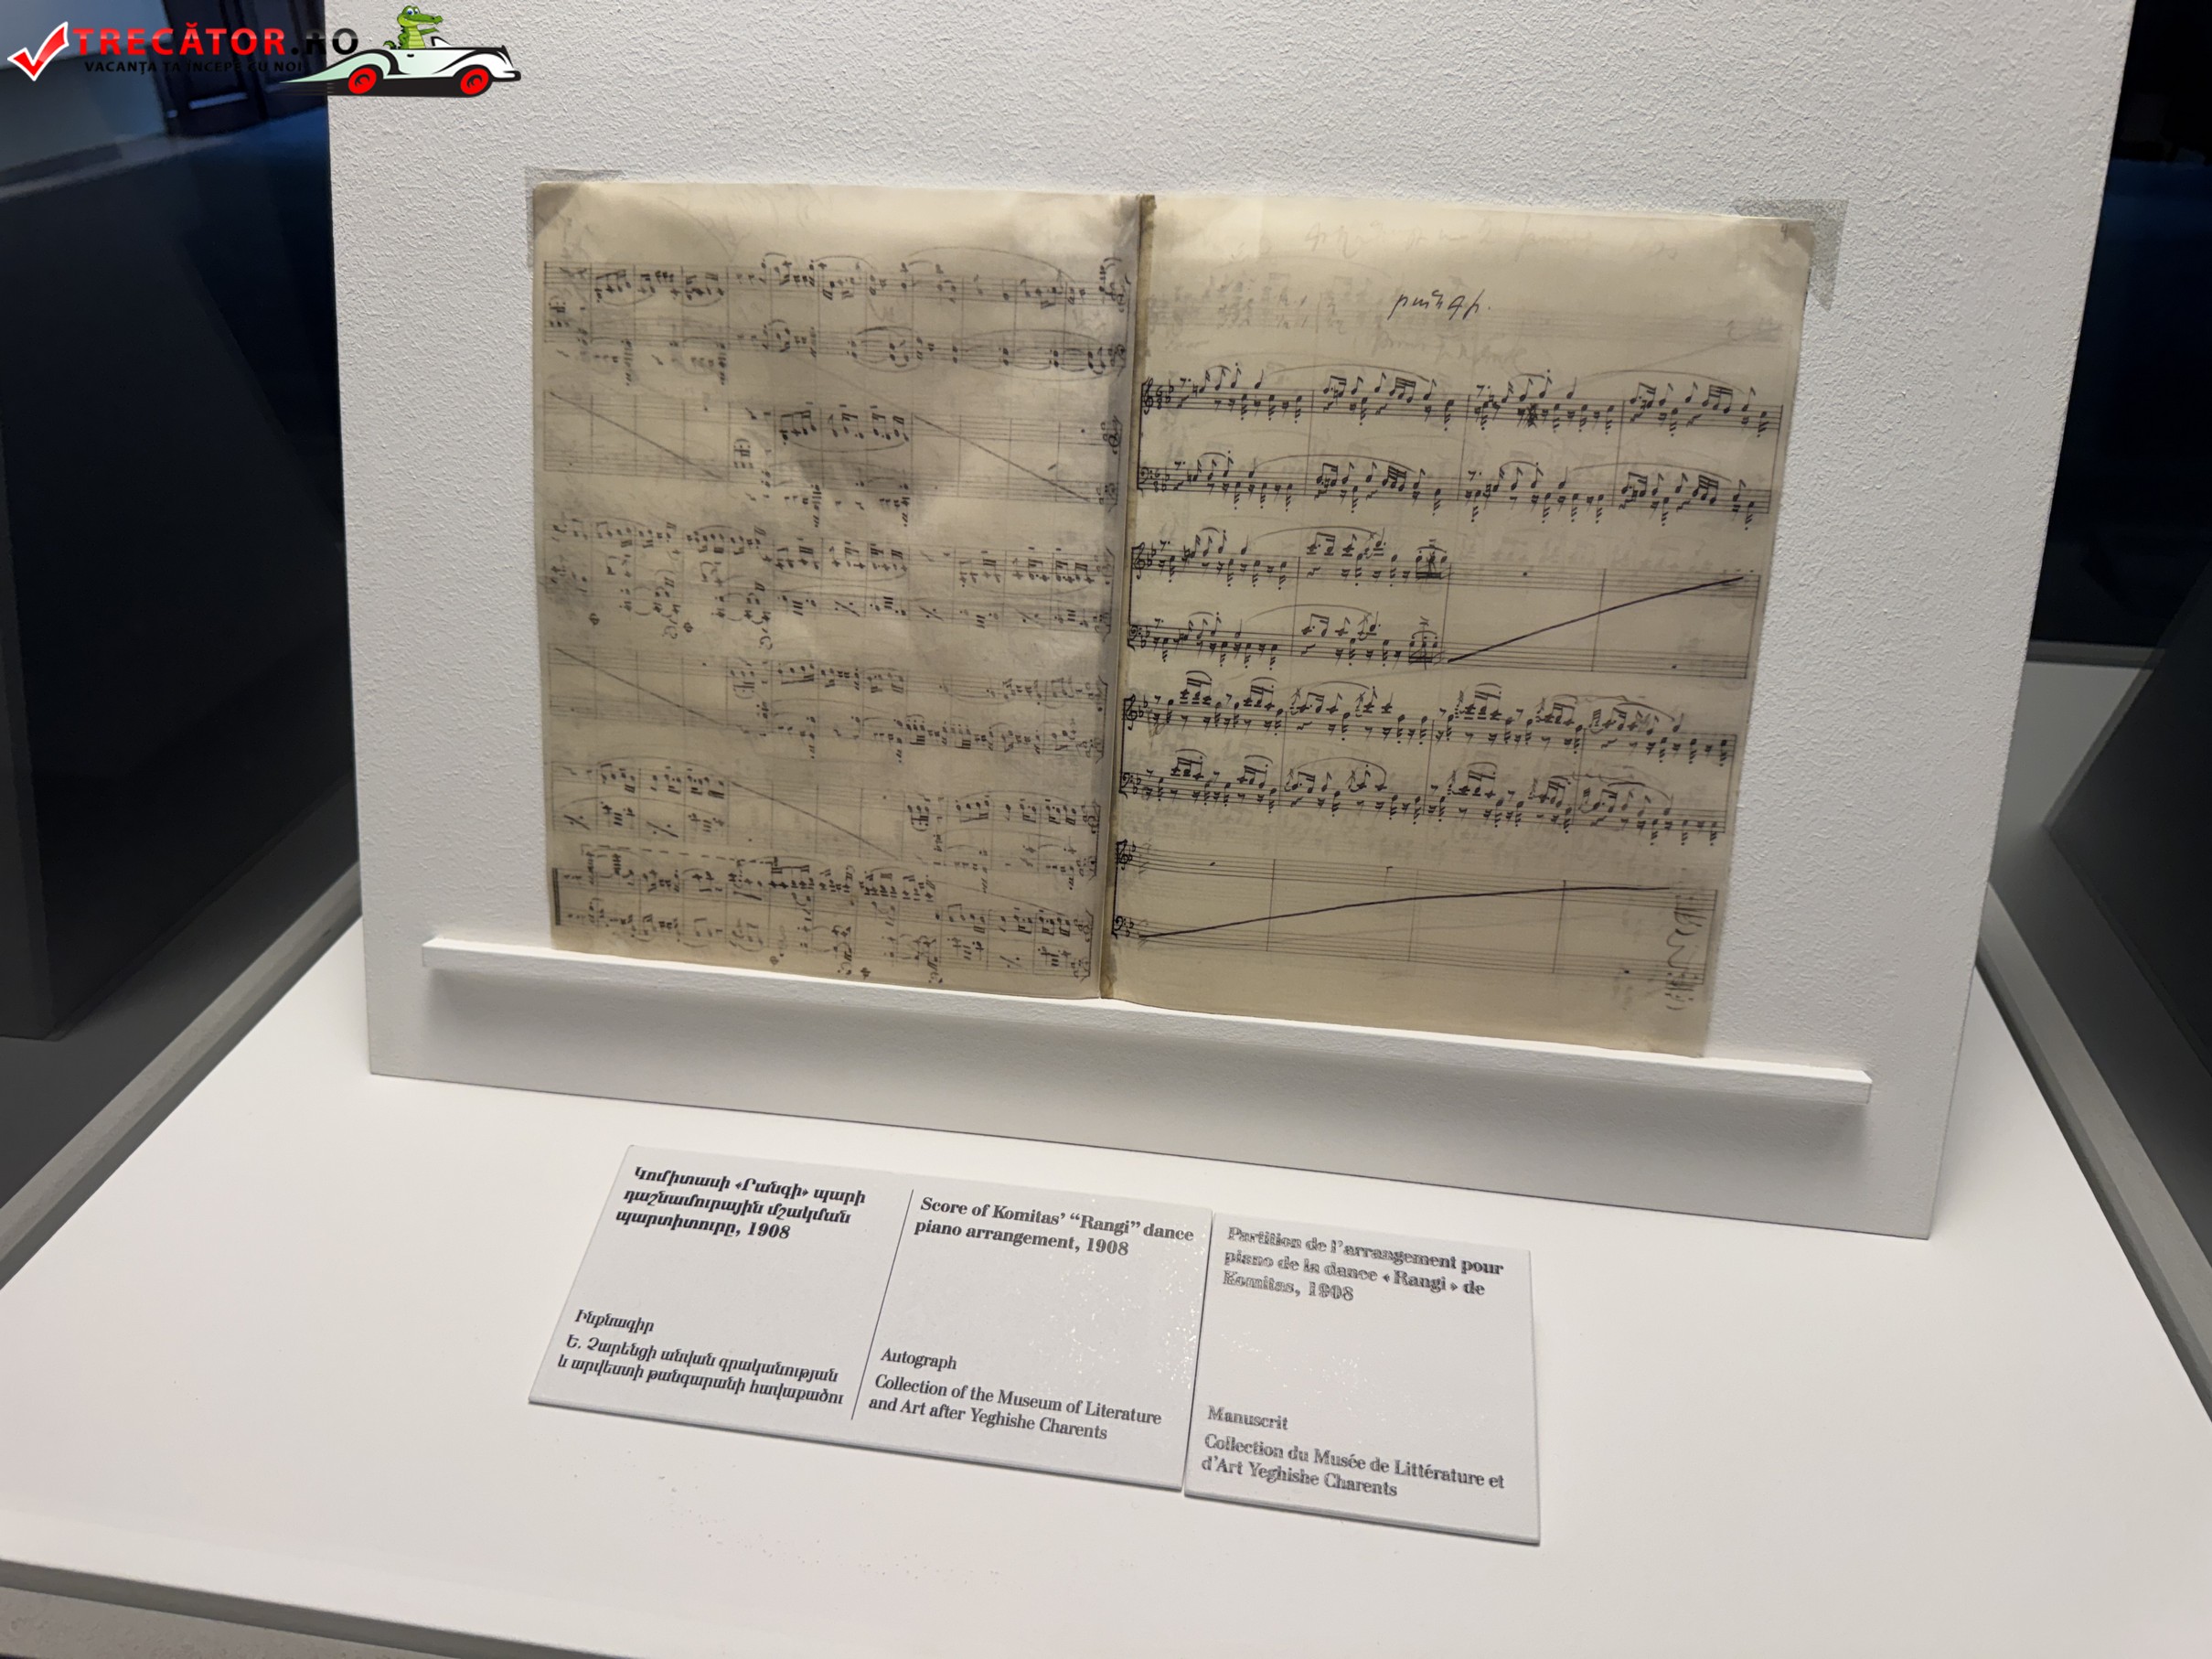 TRECĂTOR.RO
VACANȚA TA ÎNCEPE CU NOI
րանգի.
Կոմիտասի «Րանգի» պարի
դաշնամուրային մշակման
պարտիտուրը, 1908
Ինքնագիր
Ե. Չարենցի անվան գրականության
և արվեստի թանգարանի հավաքածու
Score of Komitas’ “Rangi” dance
piano arrangement, 1908
Autograph
Collection of the Museum of Literature
and Art after Yeghishe Charents
Partition de l’arrangement pour
piano de la dance « Rangi » de
Komitas, 1908
Manuscrit
Collection du Musée de Littérature et
d’Art Yeghishe Charents